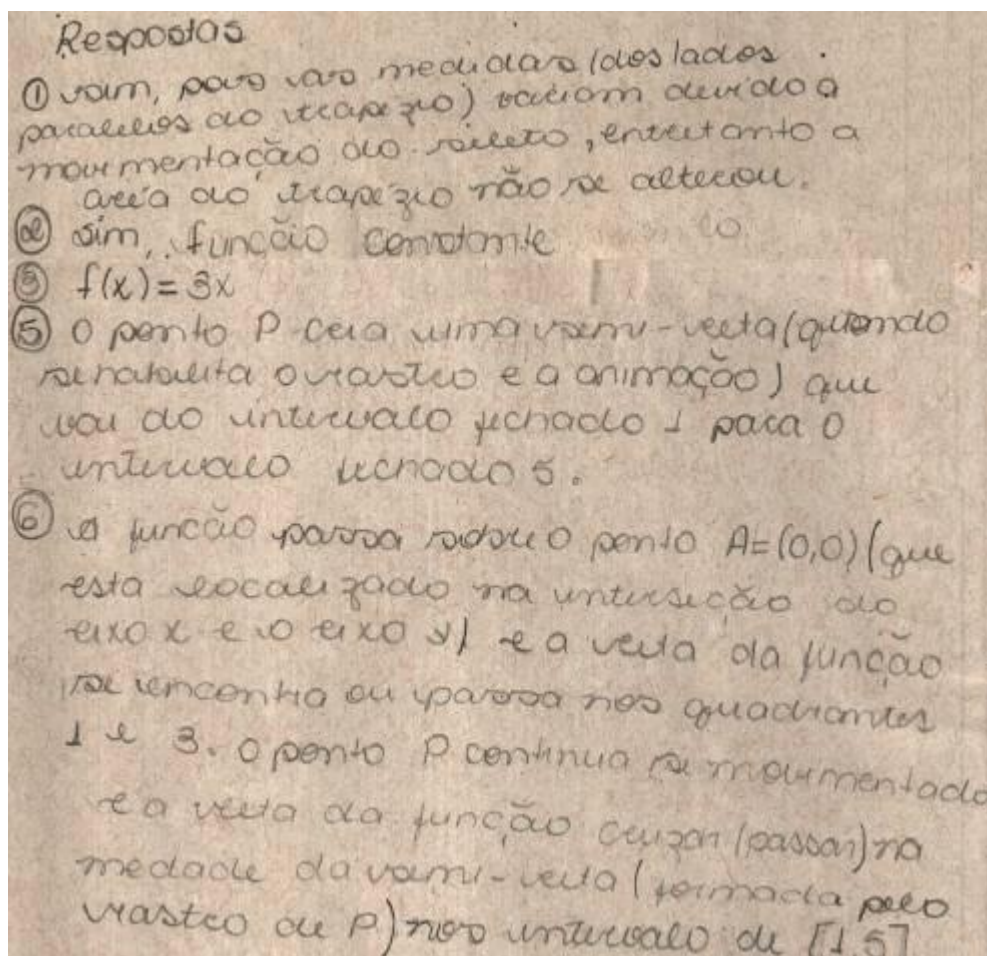 Respostas
① sim, pois as medidas (dos lados
paralelos do trapézio) variam devido a
movimentação do seleto, entretanto a
área do trapézio não se alterou.
② sim, função constante
③ f(x) = 3x
⑤ O ponto P cria uma semi-reta (quando
se habilita o rastro e a animação) que
vai do intervalo fechado 1 para o
intervalo fechado 5.
⑥ A função passa sobre o ponto A=(0,0) (que
esta localizado na interseção do
eixo x e o eixo y) e a reta da função
se encontra ou passa nos quadrantes
1 e 3. O ponto P continua se movimentado
e a reta da função cruzar (passar) na
metade da semi-reta (formada pelo
rastro de P) nos intervalo de [1,5]